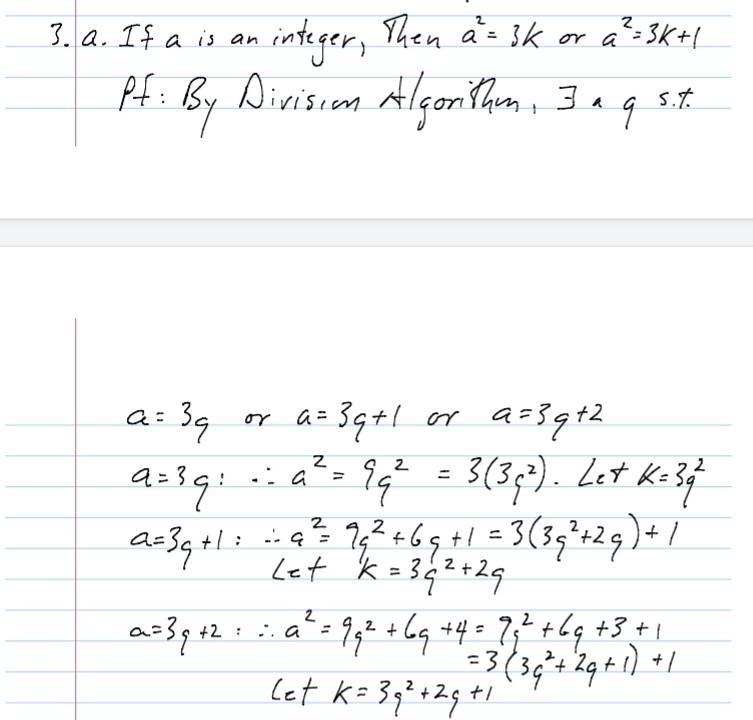 3. a. If a is an integer, Then a² = 3k or a² = 3k+1
Pf: By Division Algorithm, ∃ a q s.t.
a = 3q or a = 3q+1 or a = 3q+2
a = 3q: ∴ a² = 9q² = 3(3q²). Let K = 3q²
a = 3q+1: ∴ a² = 9q² + 6q + 1 = 3(3q²+2q) + 1
Let k = 3q² + 2q
a = 3q+2: ∴ a² = 9q² + 6q + 4 = 9q² + 6q + 3 + 1
= 3(3q² + 2q + 1) + 1
Let k = 3q² + 2q + 1